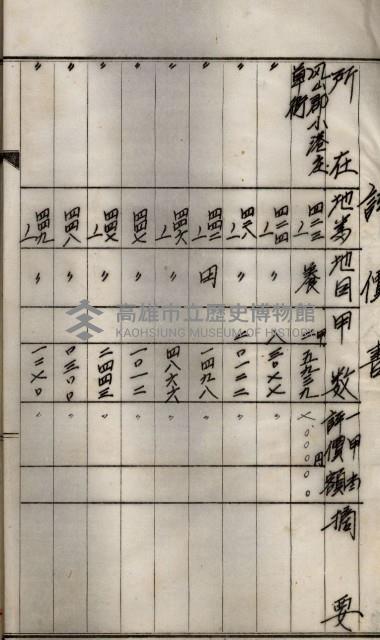 評價書
所在 地番 地目 甲数 一甲当評價額 摘要
鳳山郡小港庄草衙 四二三ノ一 養 一甲五九三九 ×〇〇〇〇円
〃 四二四ノ一 〃
〃 〃 二〇一二二 〃
〃 四四二ノ一 田 一四九八 〃
〃 四四六ノ一 〃 四八六六 〃
〃 四四七 〃 一〇一二 〃
〃 四四七ノ一 〃 二四四三 〃
〃 四四八 〃 〇三〇〇 〃
〃 四四九ノ一 〃 〃
高雄市立歷史博物館
KAOHSIUNG MUSEUM OF HISTORY